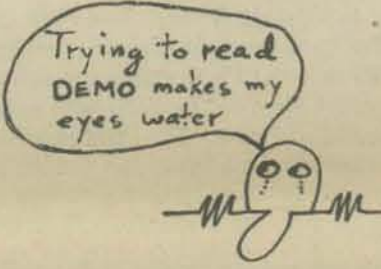 Trying to read
DEMO makes my
eyes water